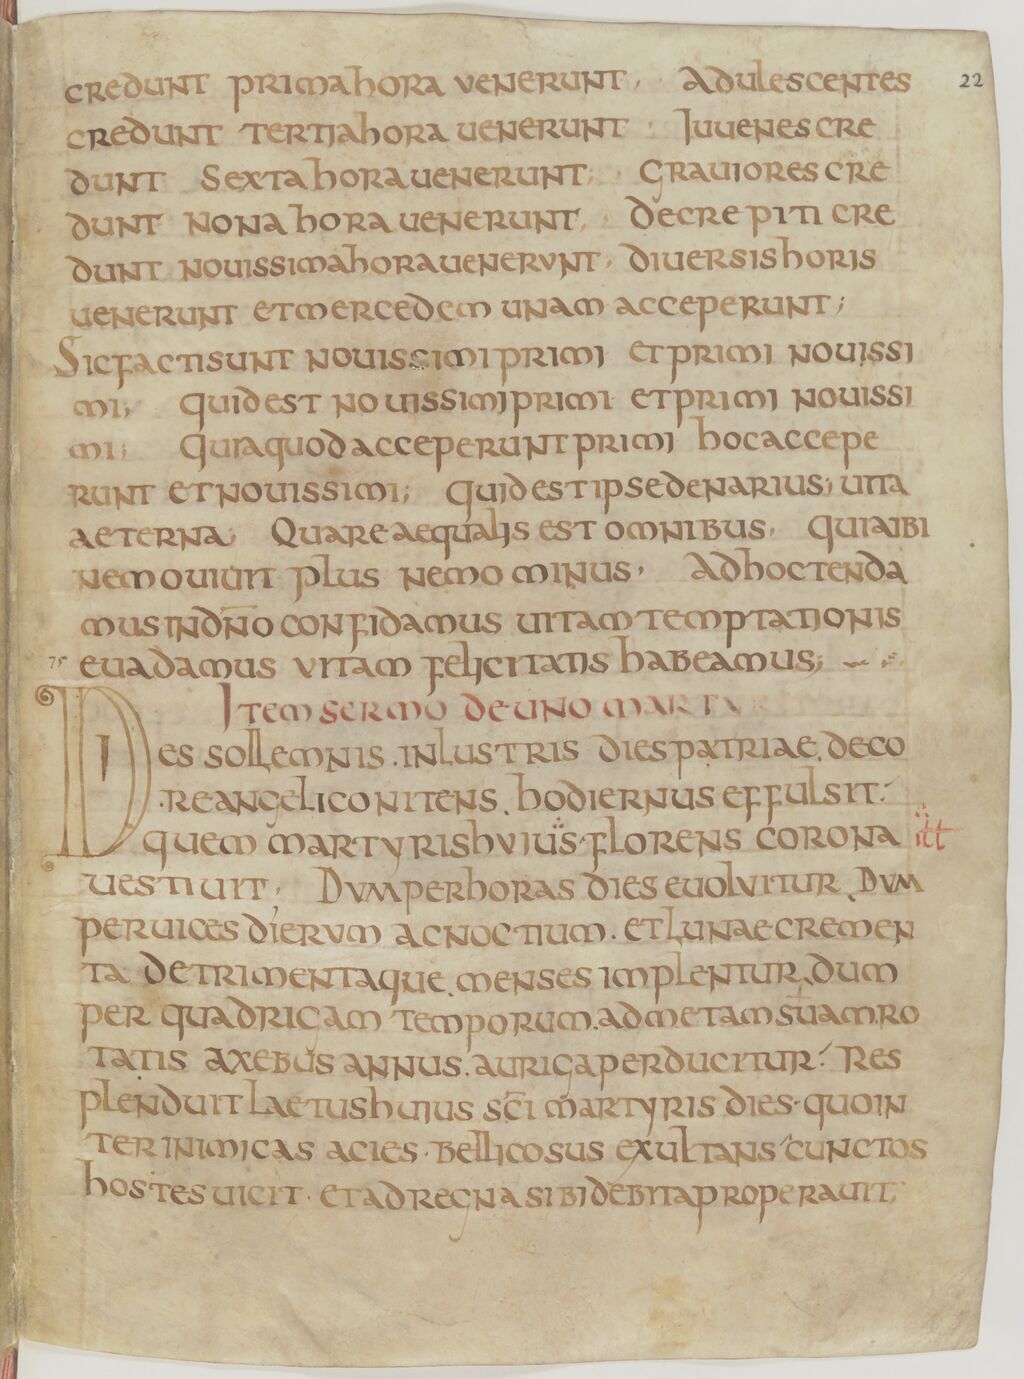 22
credunt prima hora venerunt, Adulescentes
credunt tertia hora uenerunt. Iuuenes cre
dunt Sexta hora uenerunt; Grauiores cre
dunt nona hora uenerunt; decrepiti cre
dunt nouissima hora uenervnt, diuersis horis
uenerunt et mercedem unam acceperunt;
Sic facti sunt nouissimi primi et primi nouissi
mi; quid est nouissimi primi et primi nouissi
mi; Quia quod acceperunt primi hoc accepe
runt et nouissimi; quid est ipse denarius; uita
aeterna; Quare aequalis est omnibus, quia ibi
nemo uiuit plus nemo minus, Ad hoc tenda
mus in dn̄o confidamus uitam temptationis
75 euadamus vitam felicitatis habeamus;
Item sermo de uno marty
Dies sollemnis. inlustris dies patriae. deco
re angelico nitens. hodiernus effulsit.
quem martyris hvius florens corona
itt
uestiuit; Dvm per horas dies euolvitur. Dvm
per uices diervm ac noctium. et lunae cremen
ta detrimentaque. menses implentur. dum
per quadrigam temporum. ad metam suam ro
tatis axebus annus. auriga perducitur. Res
plenduit laetus huius sc̄i martyris dies. quo in
ter inimicas acies. bellicosus exultans cunctos
hostes uicit. et ad regna sibi debita properauit;